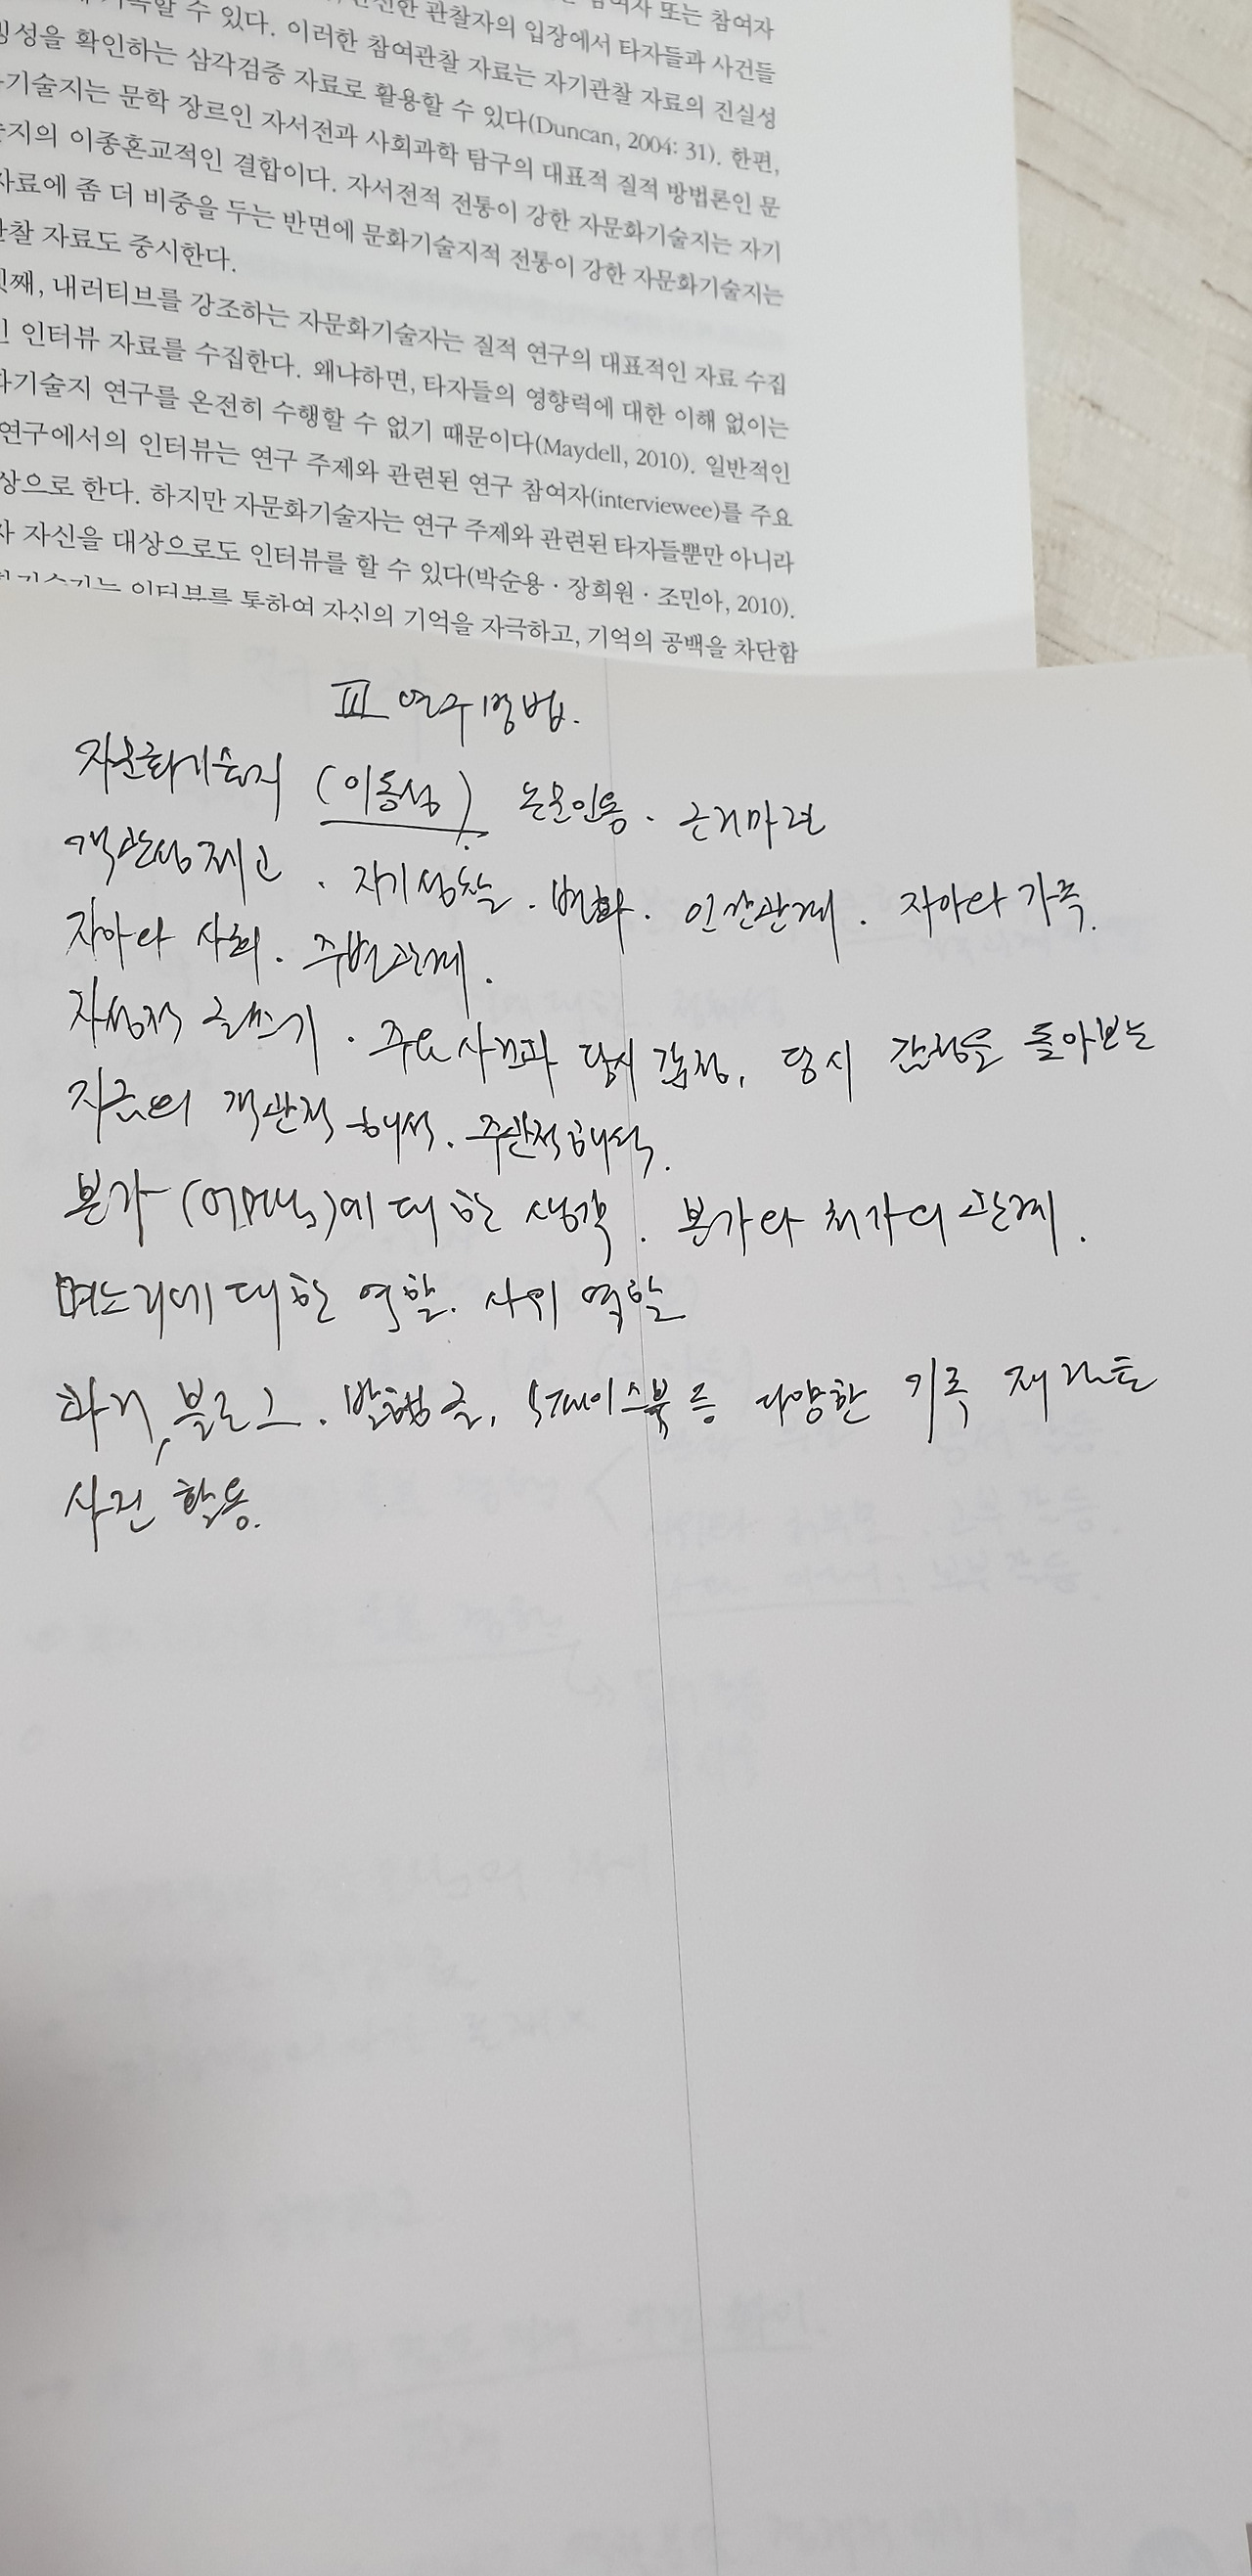 참여자 또는 참여자
할 수 있다. 이러한 참여관찰 자료는 관찰자의 입장에서 타자들과 사건들
성을 확인하는 삼각검증 자료로 활용할 수 있다(Duncan, 2004: 31). 한편,
기술지는 문학 장르인 자서전과 사회과학 탐구의 대표적 질적 방법론인 문
지의 이종혼교적인 결합이다. 자서전적 전통이 강한 자문화기술지는 자기
자료에 좀 더 비중을 두는 반면에 문화기술지적 전통이 강한 자문화기술지는
찰 자료도 중시한다.
째, 내러티브를 강조하는 자문화기술자는 질적 연구의 대표적인 자료 수집
인터뷰 자료를 수집한다. 왜냐하면, 타자들의 영향력에 대한 이해 없이는
기술지 연구를 온전히 수행할 수 없기 때문이다(Maydell, 2010). 일반적인
연구에서의 인터뷰는 연구 주제와 관련된 연구 참여자(interviewee)를 주요
상으로 한다. 하지만 자문화기술자는 연구 주제와 관련된 타자들뿐만 아니라
자신을 대상으로도 인터뷰를 할 수 있다(박순용·장희원·조민아, 2010).
인터뷰를 통하여 자신의 기억을 자극하고, 기억의 공백을 차단함
III 연구방법.
자문화기술지 (이동성) 논문인용. 근거마련
객관성제고. 자기성찰. 변화. 인간관계. 자아와 가족.
자아와 사회. 주변관계.
자성적 글쓰기. 주요사건과 당시 감정, 당시 감정을 돌아보는
지금의 객관적 해석. 주관적해석.
본가 (어머님)에 대한 생각. 본가와 처가의 관계.
며느리에 대한 역할. 사위 역할
과거, 블로그. 발행글, 페이스북 등 다양한 기록
사진 활용.